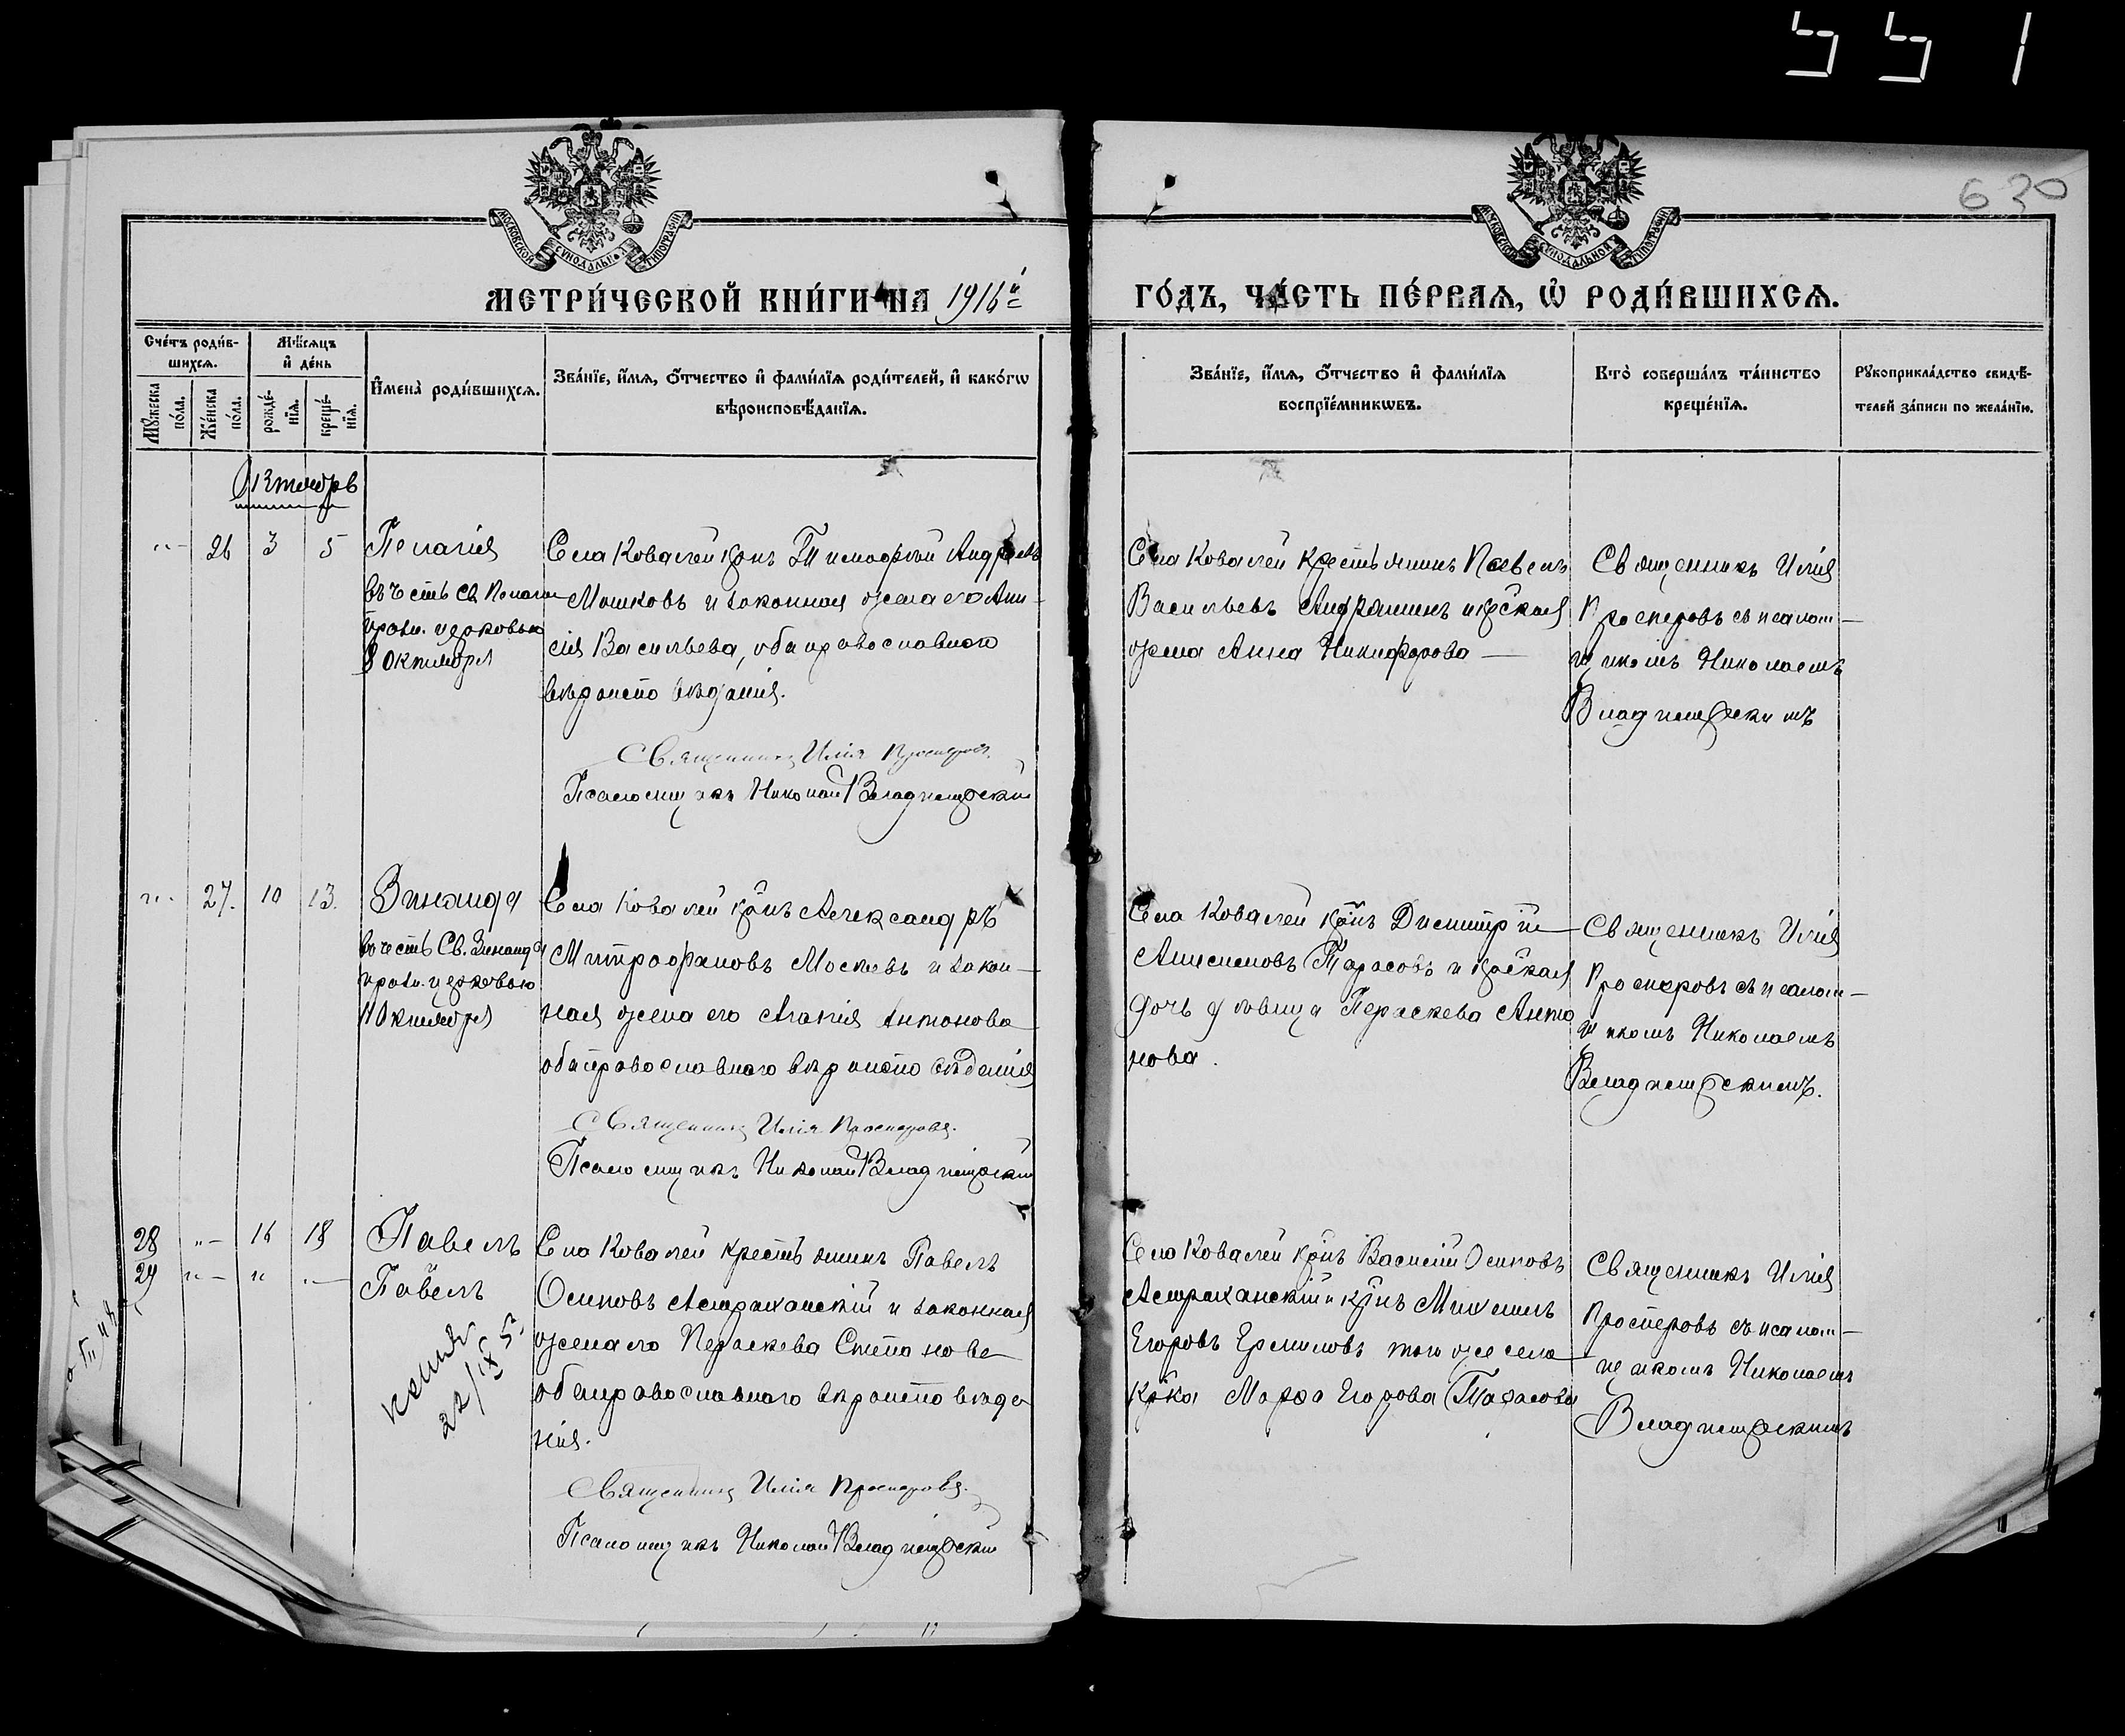 551
630
МОСКОВСКОЙ СѴНОДАЛЬНОЙ ТИПОГРАФІИ
МОСКОВСКОЙ СѴНОДАЛЬНОЙ ТИПОГРАФІИ
МЕТРИ́ЧЕСКОЙ КНИ́ГИ НА 1916й
ГО́ДЪ, ЧА́СТЬ ПЕ́РВАЯ, Ѡ РОДИ́ВШИХСЯ.
Сче́тъ роди́в-
шихся.
Мꙋжеска по́ла.
Же́нска по́ла.
Мѣ́сяцъ
и҆ де́нь
рожде́-
нїя.
креще́-
нїя.
И҆мена̀ роди́вшихся.
Зва́нїе, и҆́мя, ѻ҆́тчество и҆ фами́лїя роди́телей, и҆ како́гѡ
вѣроисповѣ́данїя.
Зва́нїе, и҆́мя, ѻ҆́тчество и҆ фами́лїя
воспрїе́мникѡвъ.
Кто̀ соверша́лъ та́инство
креще́нїя.
Рꙋкоприкла́дство свидѣ́-
телей за́писи по жела́нїю.
Октябрь
"- 26 3 5 Пелагія
въ честь св. Пелагіи
празн. церковью
8 Октября
Села Ковалей крнъ Тимофей Андреевъ
Мошковъ и законная жена его Ани-
сія Васильева, оба православнаго
вѣроисповѣданія.
Священникъ Илія Просперовъ.
Псаломщикъ Николай Владпещерскій
Села Ковалей крестьянинъ Павелъ
Васильевъ и крская
жена Анна Никифорова —
Священникъ Илія
Просперовъ съ псалом-
щикомъ Николаемъ
Владпещерскимъ
"- 27. 10 13. Зинаида
въ честь Св. Зинаиды
празн. церковью
11 Октября
Села Ковалей крнъ Александръ
Митрофановъ и закон-
ная жена его Агапія Антонова
оба православнаго вѣроисповѣданія
Священникъ Илія Просперовъ.
Псаломщикъ Николай Владпещерскій
Села Ковалей крнъ Димитрій
Анисимовъ Тарасовъ и крская
дочь дѣвица Параскева Анто
нова.
Священникъ Илія
Просперовъ съ псалом-
щикомъ Николаемъ
Владпещерскимъ.
28 "- 16 18 Павелъ
29 "- " "- Павелъ
22/IX 53
Села Ковалей крестьянинъ Павелъ
Осиповъ Астраханскій и законная
жена его Параскева Степанова
оба православнаго вѣроисповѣда
нія.
Священникъ Илія Просперовъ.
Псаломщикъ Николай Владпещерскій
Села Ковалей крнъ Василій Осиповъ
Астраханскій и крнъ Михаилъ
Егоровъ Ермиловъ того же села
крка Марфа Егорова Тарасова
Священникъ Илія
Просперовъ съ псалом-
щикомъ Николаемъ
Владпещерскимъ